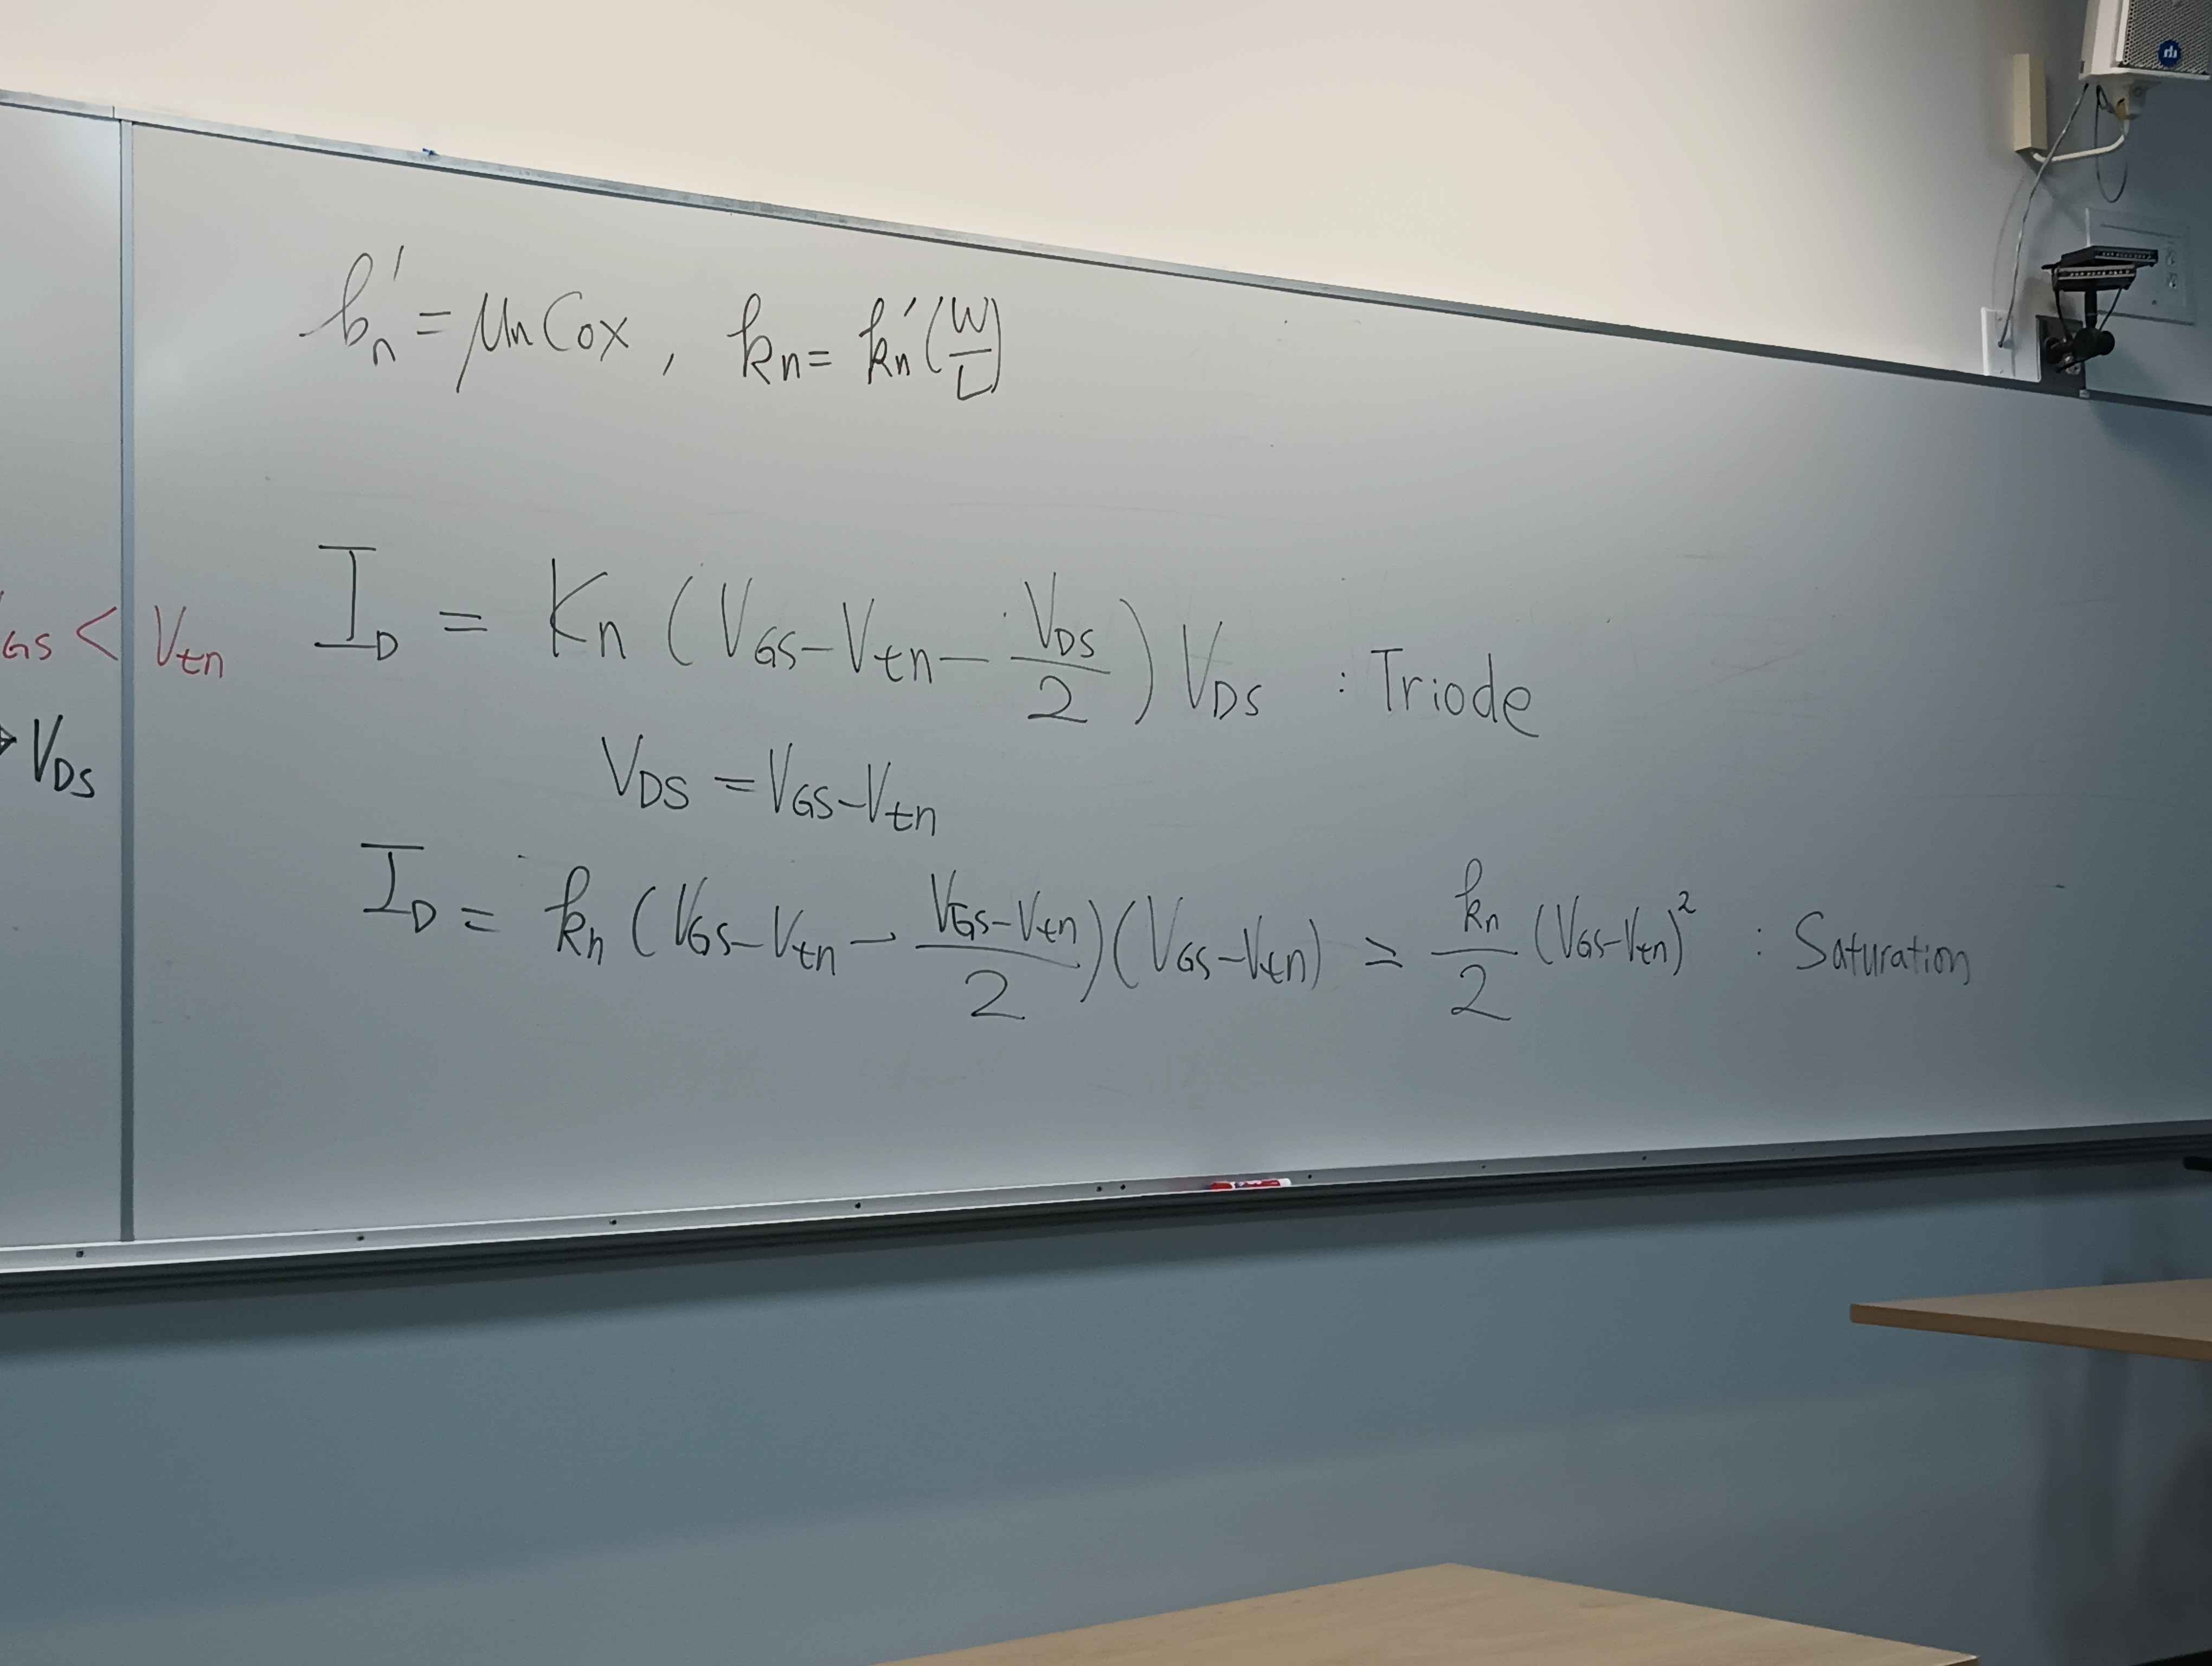 kn' = μn Cox , kn = kn' (W/L)
GS < Vtn
ID = Kn (VGS - Vtn - VDS/2) VDS : Triode
VDS
VDS = VGS - Vtn
ID = kn (VGS - Vtn - (VGS - Vtn)/2)(VGS - Vtn) = kn/2 (VGS - Vtn)² : Saturation